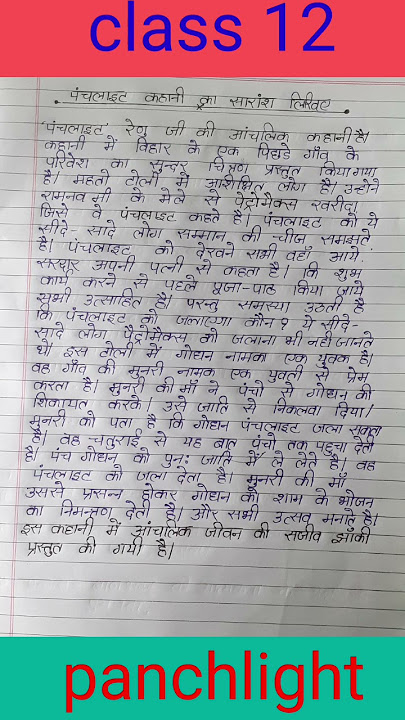 class 12
पंचलाइट कहानी का सारांश लिखिए
'पंचलाइट' रेणु जी की आंचलिक कहानी है।
कहानी में बिहार के एक पिछडे गाँव के
परिवेश का सुन्दर चित्रण प्रस्तुत किया गया
है। महतो टोली में अशिक्षित लोग है। उन्होंने
रामनवमी के मेले से पेट्रोमैक्स खरीदा
जिसे वे पंचलाइट कहते है। पंचलाइट को ये
सीदे-सादे लोग सम्मान की चीज समझते
है। पंचलाइट को देखने सभी वहाँ आये।
सरदार अपनी पत्नी से कहता है। कि शुभ
कार्य करने से पहले पूजा-पाठ किया जाये
सभी उत्साहित है। परन्तु समस्या उठती है
कि पंचलाइट को जलाएगा कौन? ये सीदे-
सादे लोग पैट्रोमैक्स को जलाना भी नहीं जानते
थे। इस टोली में गोधन नामका एक युवक है।
वह गाँव की मुनरी नामक एक युवती से प्रेम
करता है। मुनरी की माँ ने पंचो से गोधन की
शिकायत करके। उसे जाति से निकलवा दिया।
मुनरी को पता है कि गोधन पंचलाइट जला सकता
है। वह चतुराई से यह बात पंचो तक पहुचा देती
है। पंच गोधन को पुनः जाति में ले लेते है। वह
पंचलाइट को जला देता है। मुनरी की माँ
उससे प्रसन्न होकर गोधन को शाम के भोजन
का निमन्त्रण देती है। और सभी उत्सव मनाते है।
इस कहानी में आंचलिक जीवन की सजीव झाँकी
प्रस्तुत की गयी है।
panchlight